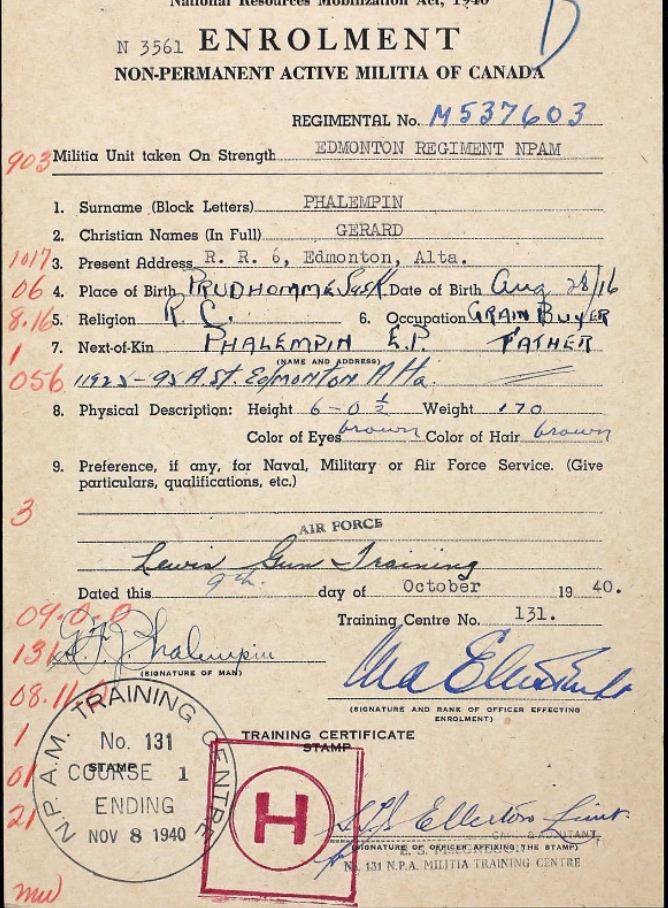 National Resources Mobilization Act, 1940
D
N 3561 ENROLMENT
NON-PERMANENT ACTIVE MILITIA OF CANADA
REGIMENTAL No. M537603
903 Militia Unit taken On Strength EDMONTON REGIMENT NPAM
1. Surname (Block Letters) PHALEMPIN
2. Christian Names (In Full) GERARD
1017 3. Present Address R. R. 6, Edmonton, Alta.
06 4. Place of Birth PRUDHOMME Sask Date of Birth Aug 28/16
8.16 5. Religion R.C. 6. Occupation GRAIN BUYER
1 7. Next-of-Kin PHALEMPIN E.P. FATHER
(NAME AND ADDRESS)
056 11925-95 A. St. Edmonton Alta.
8. Physical Description: Height 6-0½ Weight 170
Color of Eyes brown Color of Hair brown
9. Preference, if any, for Naval, Military or Air Force Service. (Give
particulars, qualifications, etc.)
3
AIR FORCE
Lewis Gun Training
Dated this 9th. day of October 19 40.
09.0.0 Training Centre No. 131.
131 G.F.J. Phalempin
(SIGNATURE OF MAN)
08.11.0
(SIGNATURE AND RANK OF OFFICER EFFECTING
ENROLMENT)
TRAINING CERTIFICATE
STAMP
N.P.A.M. TRAINING CENTRE
1 No. 131
STAMP
01 COURSE 1
ENDING
21 NOV 8 1940
H
Ellerton Lieut.
(SIGNATURE OF OFFICER AFFIXING THE STAMP)
No. 131 N.P.A. MILITIA TRAINING CENTRE
mw